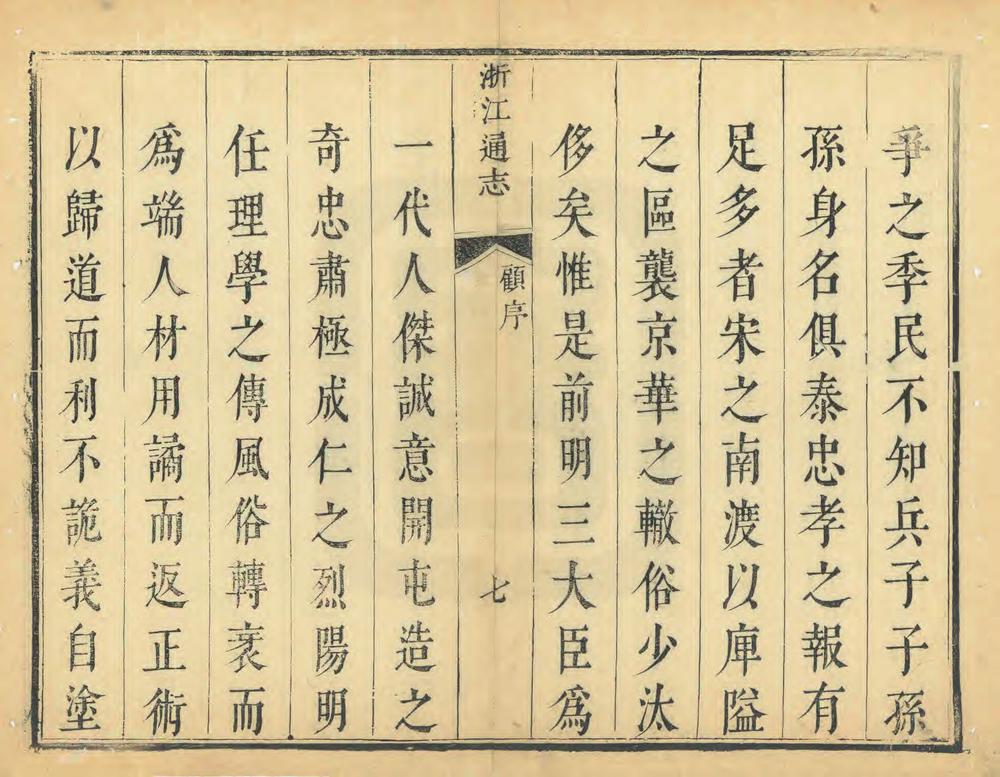 爭之季民不知兵子子孫
孫身名俱泰忠孝之報有
足多者宋之南渡以庳隘
之區襲京華之轍俗少汰
侈矣惟是前明三大臣爲
浙江通志
顧序
七
一代人傑誠意開屯造之
奇忠肅極成仁之烈陽明
任理學之傳風俗轉衰而
爲端人材用譎而返正術
以歸道而利不詭義自塗